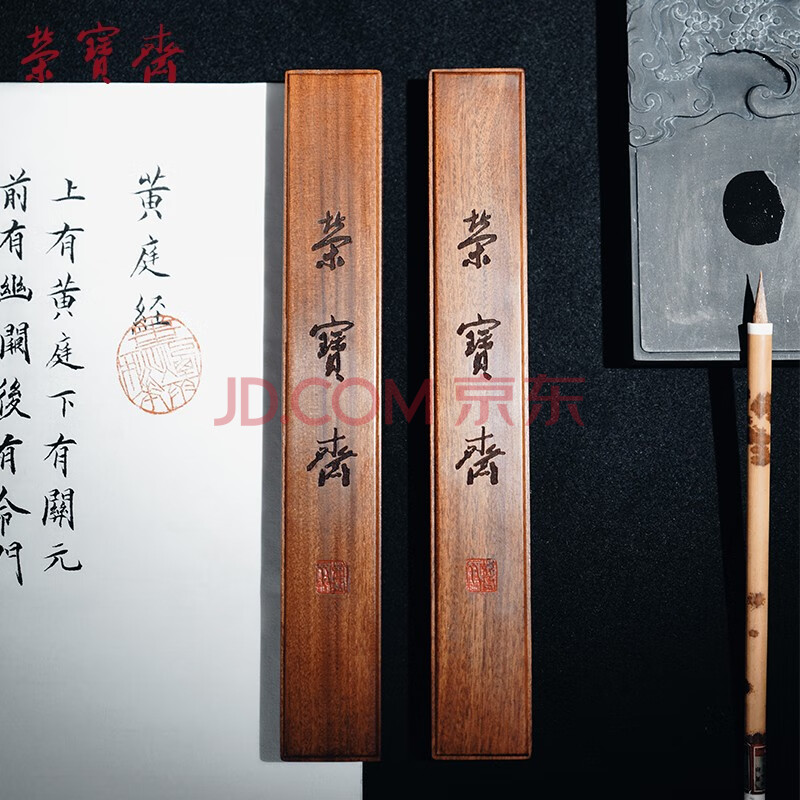 榮寶齋
黄庭经
上有黄庭下有關元
前有幽闕後有命門
榮寶齋
榮寶齋
JD.COM 京东